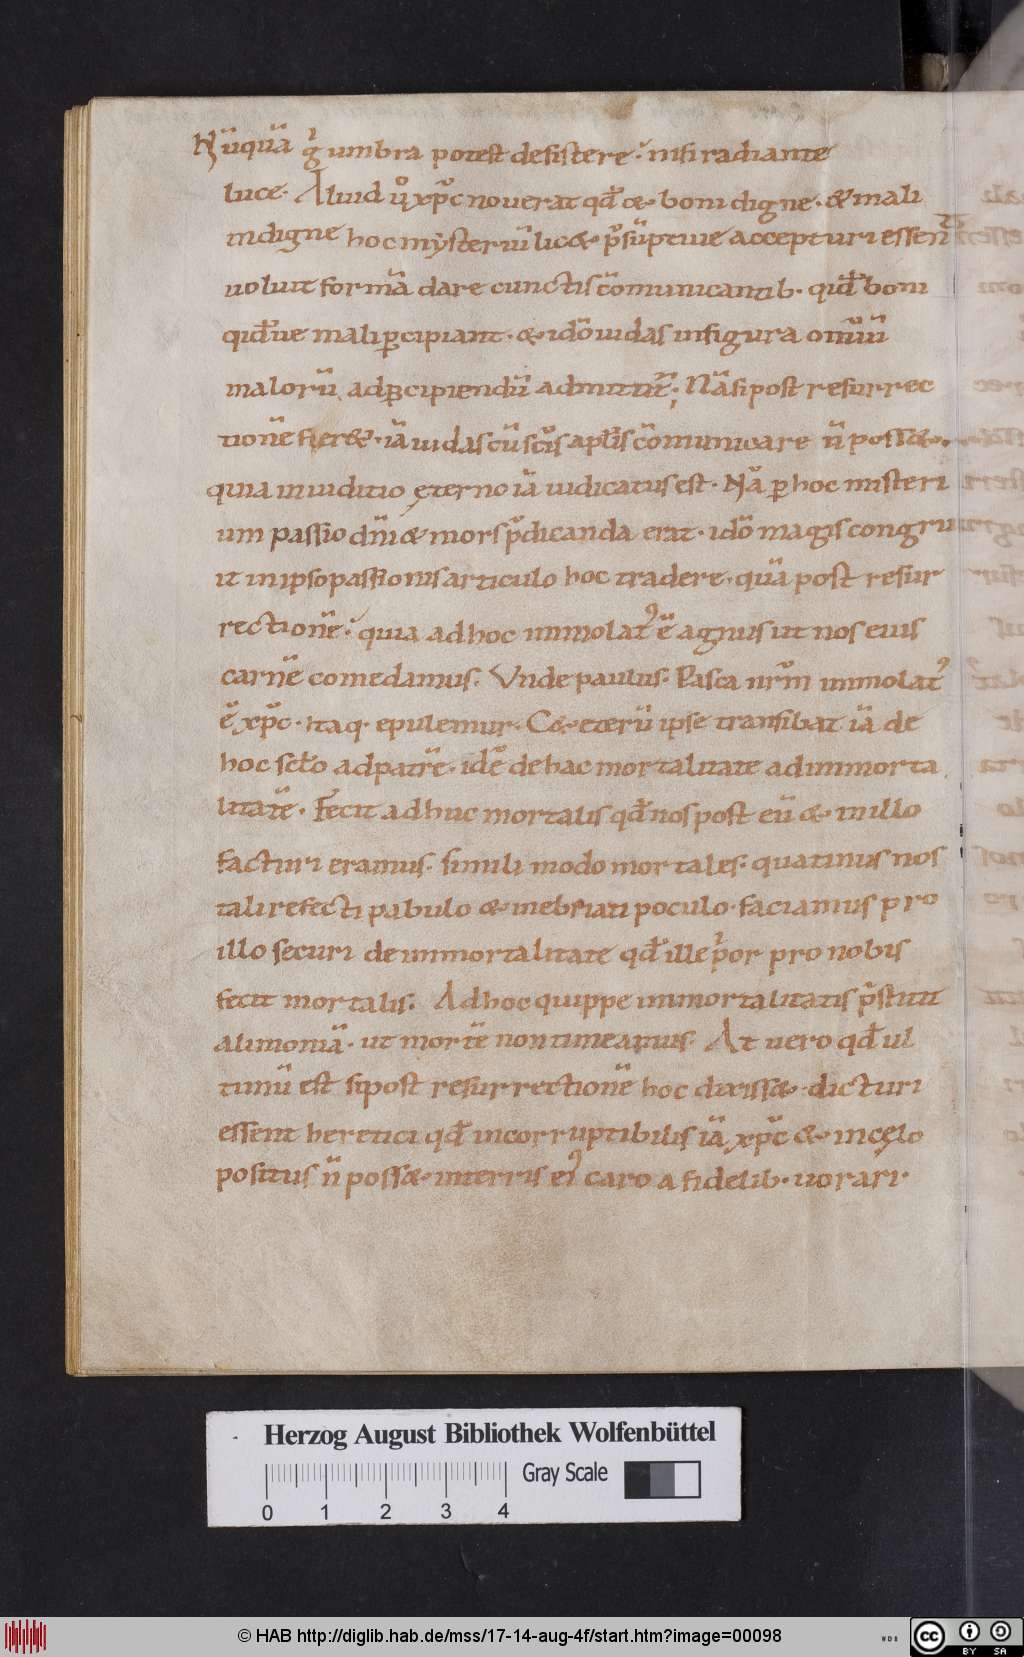 Nūquā g̍ umbra potest desistere · nisi radiante
luce · Aliud ůo xp̄c nouerat qđ & boni digne · & mali
indigne hoc mysteriū lic& p̄sūptiue accepturi essent
uoluit formā dare cunctis cōmunicantib · quid boni
quidue mali ꝑcipiant · & idō iudas infigura omiū
malorū adꝑcipiendū admittit̄ · Nā si post resurrec
tionē fier& · iā iudas cū sc̄is apl̄is cōmunicare n̄ poss& ·
quia in iuditio ęterno iā iudicatus est · Nā ꝑ hoc misteri
um passio dn̄i & mors p̄dicanda erat · idō magis congru
it in ipso passionis articulo hoc tradere · quā post resur
rectionē · quia adhoc immolat᾽ ē agnus ut nos eius
carnē comedamus · Vnde paulus · Pasca nr̄m immolat᾽
ē xp̄c · itaq · epulemur · C&erū ipse transibat iā de
hoc sc̄lo adpatrē · idē de hac mortalitate adimmorta
litatē · Fecit adhuc mortalis qđ nos post eū & in illo
facturi eramus · simili modo mortales · quatinus nos
tali refecti pabulo & inebriati poculo · faciamus pro
illo securi de immortalitate qđ ille p̍or pro nobis
fecit mortalis · Adhoc quippe immortalitatis p̄stitit
alimoniā · ut mortē non timeamus · At uero qđ ul
timū est si post resurrectionē hoc dixiss& · dicturi
essent heretici qđ incorruptibilis iā xp̄c & in cęlo
positus n̄ poss& · interris ei᾽ caro a fidelib · uorari ·
Herzog August Bibliothek Wolfenbüttel
Gray Scale
0 1 2 3 4
© HAB http://diglib.hab.de/mss/17-14-aug-4f/start.htm?image=00098
WDB
cc BY SA